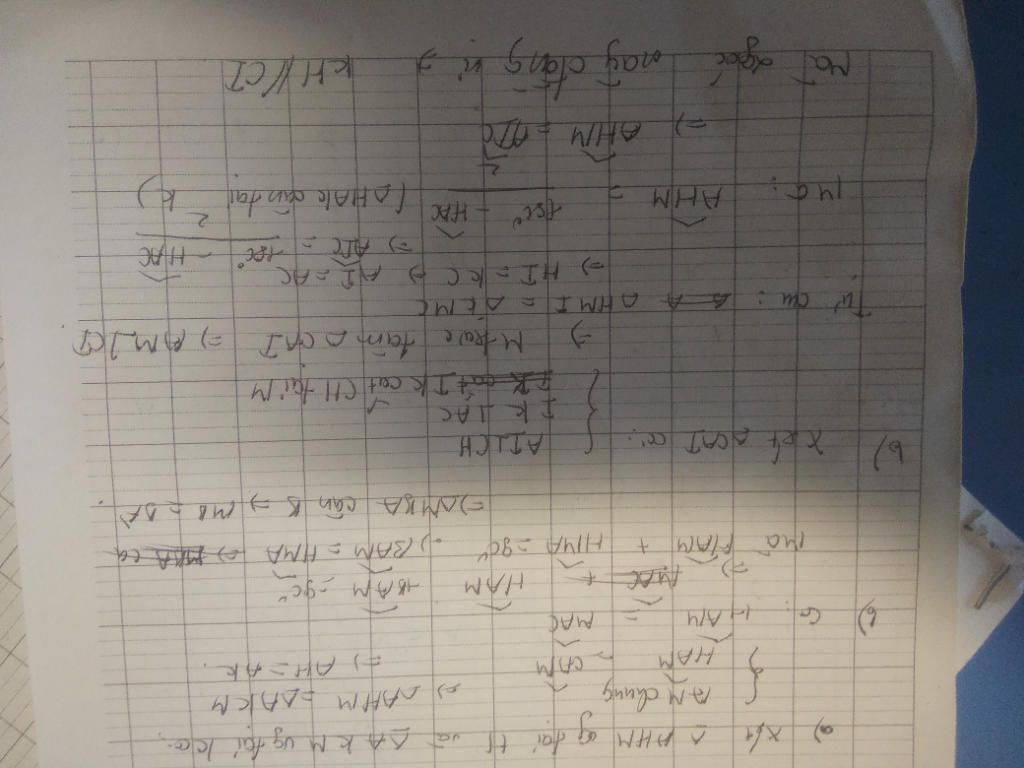 a) Xét Δ AHM vg tại H và ΔAKM vg tại K có:
{ AM chung
HAM = CAM } ⇒ ΔAHM = ΔAKM
⇒ AH = AK.
b) Có: HAM = MAC
⇒ HAM + BAM = 90°
Mà HAM + HMA = 90° ⇒ BAM = HMA ⇒
⇒ ΔMBA cân B ⇒ MB = BA.
b) Xét ΔCAI có: { AI⊥CH
IK ⊥AC
IK cắt CH tại M
⇒ M trực tâm ΔCAI ⇒ AM⊥CI
Từ cm: ΔHMI = ΔKMC
⇒ HI = KC ⇒ AI = AC
⇒ AIC = 180° - HAC / 2
Mà: AHM = 180° - HAC / 2 (ΔHAK cân tại K)
⇒ AHM = AIC
Mà 2 góc này đồng vị ⇒ KH//CI